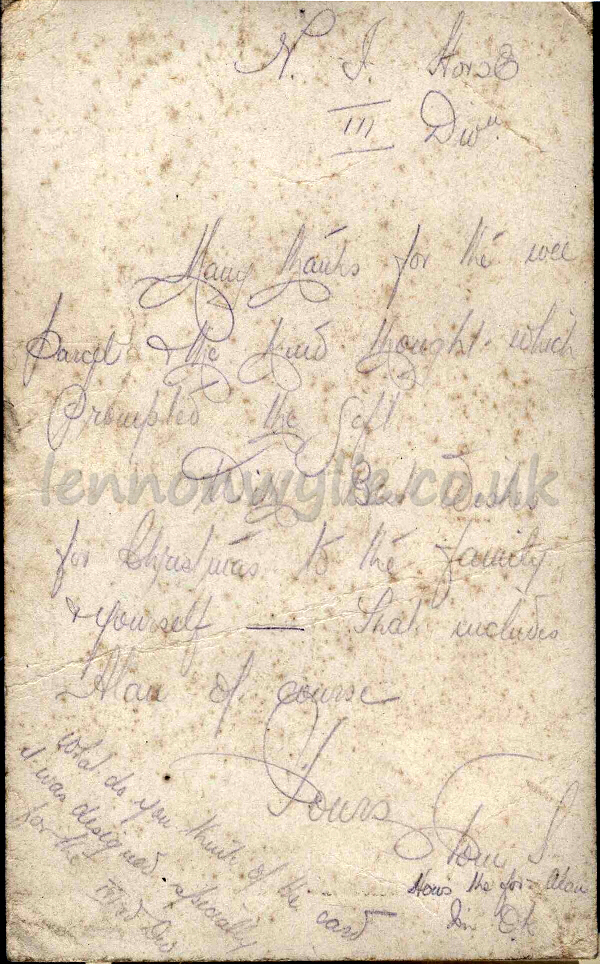 N. I. Horse
III Divn
Many thanks for the wee
parcel & the kind thought which
prompted the Gift
Best Wishes
for Christmas to the family
& yourself — That includes
Alan of course
Yours
Tom S
What do you think of the card
it was designed specially
for the Third Div
How's the Alan
I'm O.K
lennonwylie.co.uk